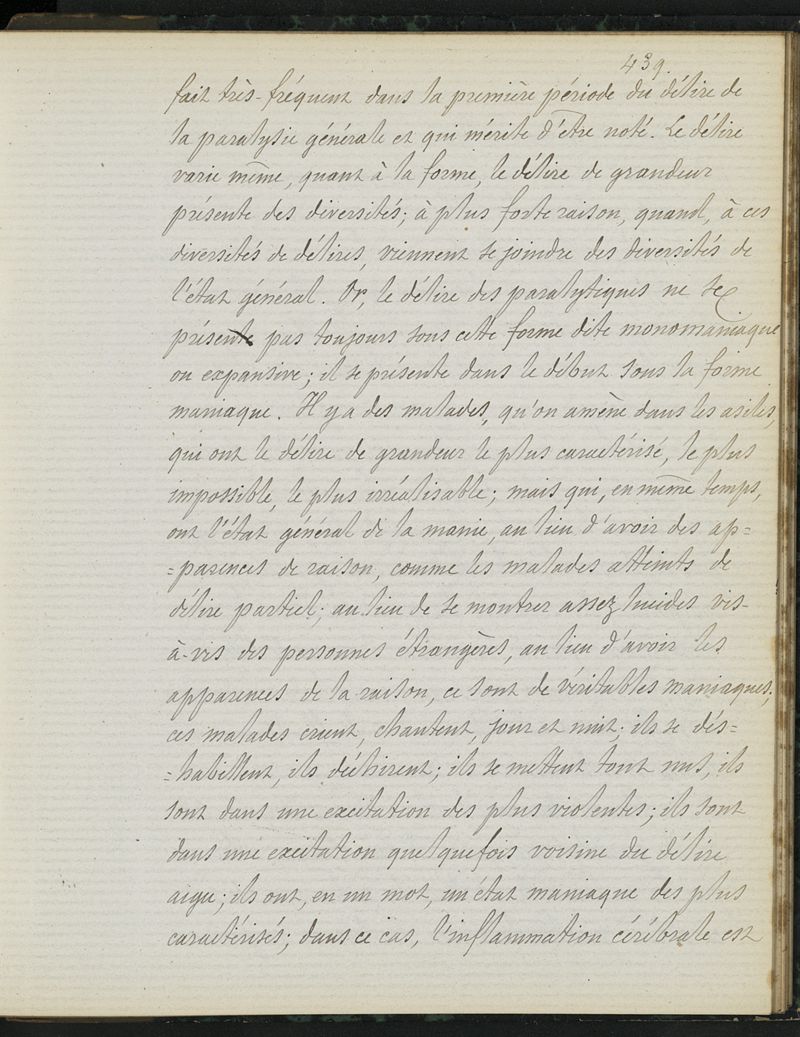 439.
fait très-fréquent dans la première période du délire de
la paralysie générale et qui mérite d'être noté. Le délire
varie même, quant à la forme, le délire de grandeur
présente des diversités; à plus forte raison, quand, à ces
diversités de délires, viennent se joindre des diversités de
l'état général. Or, le délire des paralytiques ne se
présente pas toujours sous cette forme dite monomaniaque
ou expansive; il se présente dans le début sous la forme
maniaque. Il y a des malades, qu'on amène dans les asiles,
qui ont le délire de grandeur le plus caractérisé, le plus
impossible, le plus irréalisable; mais qui, en même temps,
ont l'état général de la manie, au lieu d'avoir des ap=
=parences de raison, comme les malades atteints de
délire partiel; au lieu de se montrer assez lucides vis-
à-vis des personnes étrangères, au lieu d'avoir les
apparences de la raison, ce sont de véritables maniaques;
ces malades crient, chantent, jour et nuit; ils se dés=
=habillent, ils déchirent; ils se mettent tout nus, ils
sont dans une excitation des plus violentes; ils sont
dans une excitation quelquefois voisine du délire
aigu; ils ont, en un mot, un état maniaque des plus
caractérisés; dans ce cas, l'inflammation cérébrale est